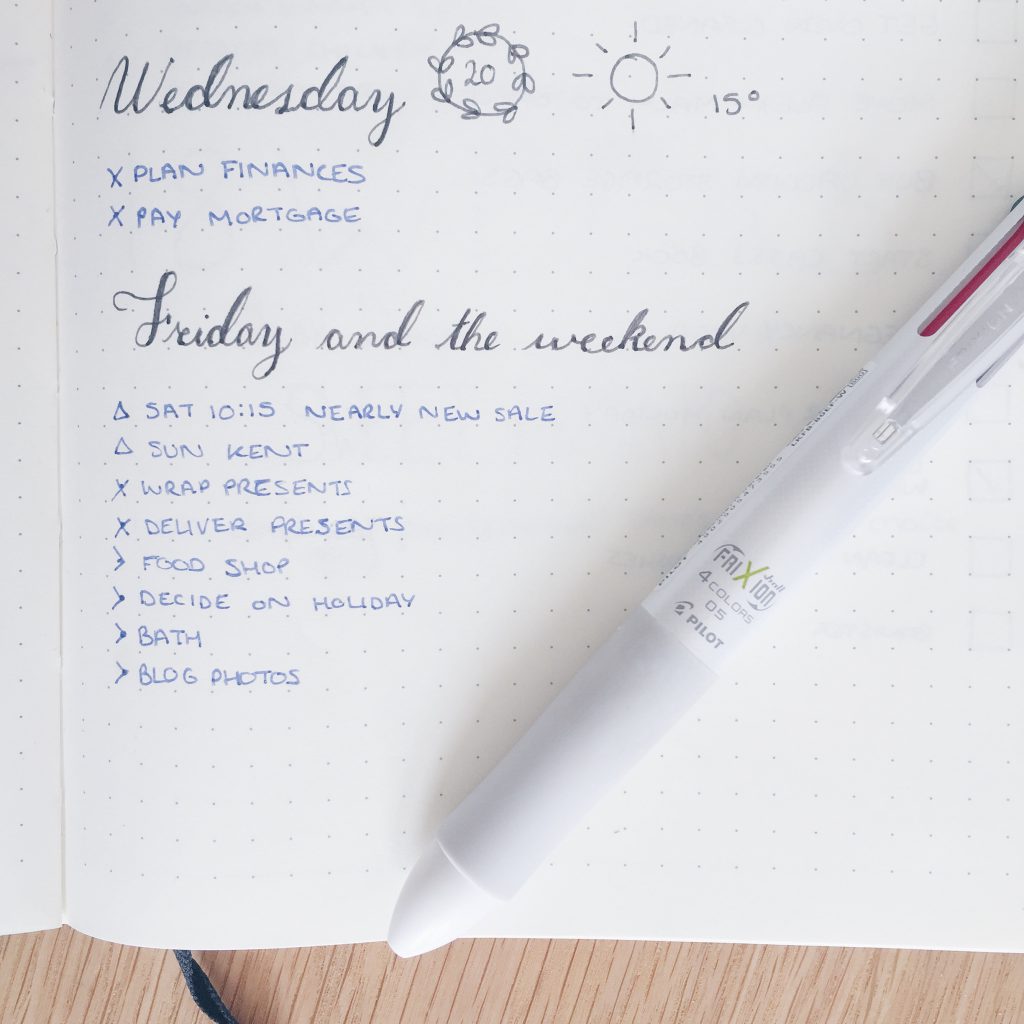 Wednesday 20 15°
X PLAN FINANCES
X PAY MORTGAGE
Friday and the weekend
Δ SAT 10:15 NEARLY NEW SALE
Δ SUN KENT
X WRAP PRESENTS
X DELIVER PRESENTS
> FOOD SHOP
> DECIDE ON HOLIDAY
> BATH
> BLOG PHOTOS
FRIXION
4 COLORS
05
PILOT